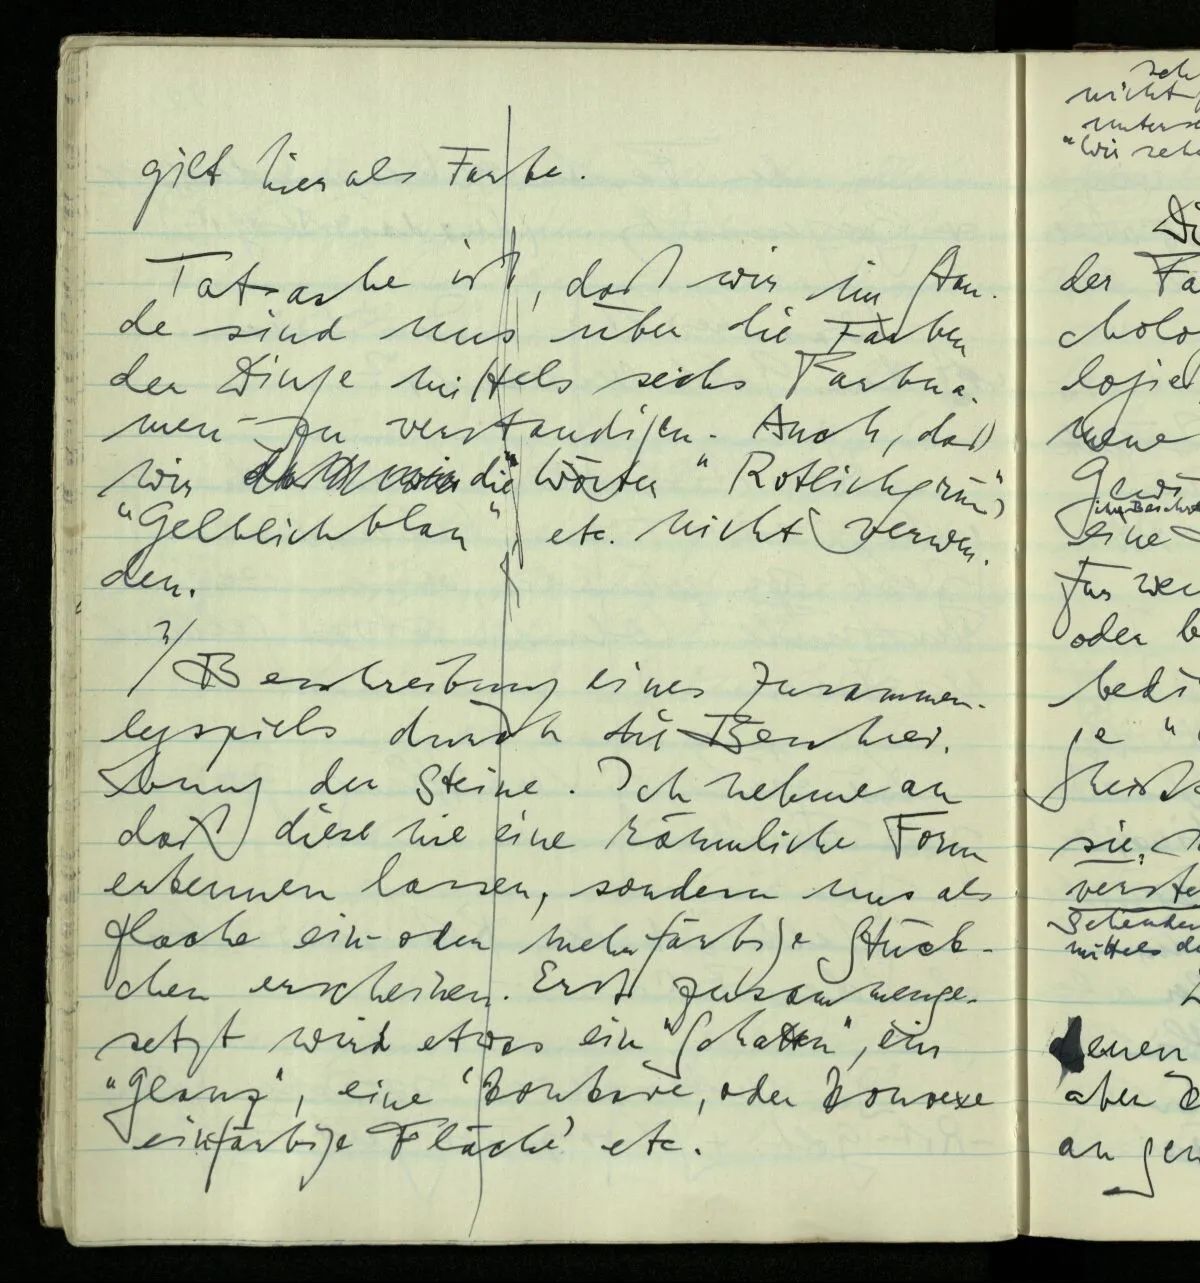 gilt hier als Farbe.
Tatsache ist, daß wir im Stan-
de sind uns über die Farben
der Dinge mittels sechs Farbna-
men zu verständigen. Auch, daß
wir die Wörter "Rötlichgrün",
"Gelblichblau", etc. nicht verwen-
den.
?/
Beschreibung eines Zusammen-
legspiels durch die Beschrei-
bung der Steine. Ich nehme an
daß diese nie eine räumliche Form
erkennen lassen, sondern uns als
flache ein- oder mehrfärbige Stück-
chen erscheinen. Erst zusammenge-
setzt wird etwas ein "Schatten", ein
"Glanz", eine 'konkave, oder konvexe
einfärbige Fläche' etc.
nicht
"Wir
Di
der Fa
cholo
logie
meine
eine
für
oder b
bedi
je "
sie,
verste
Sehenden
mittels de
denen
aber
an gen